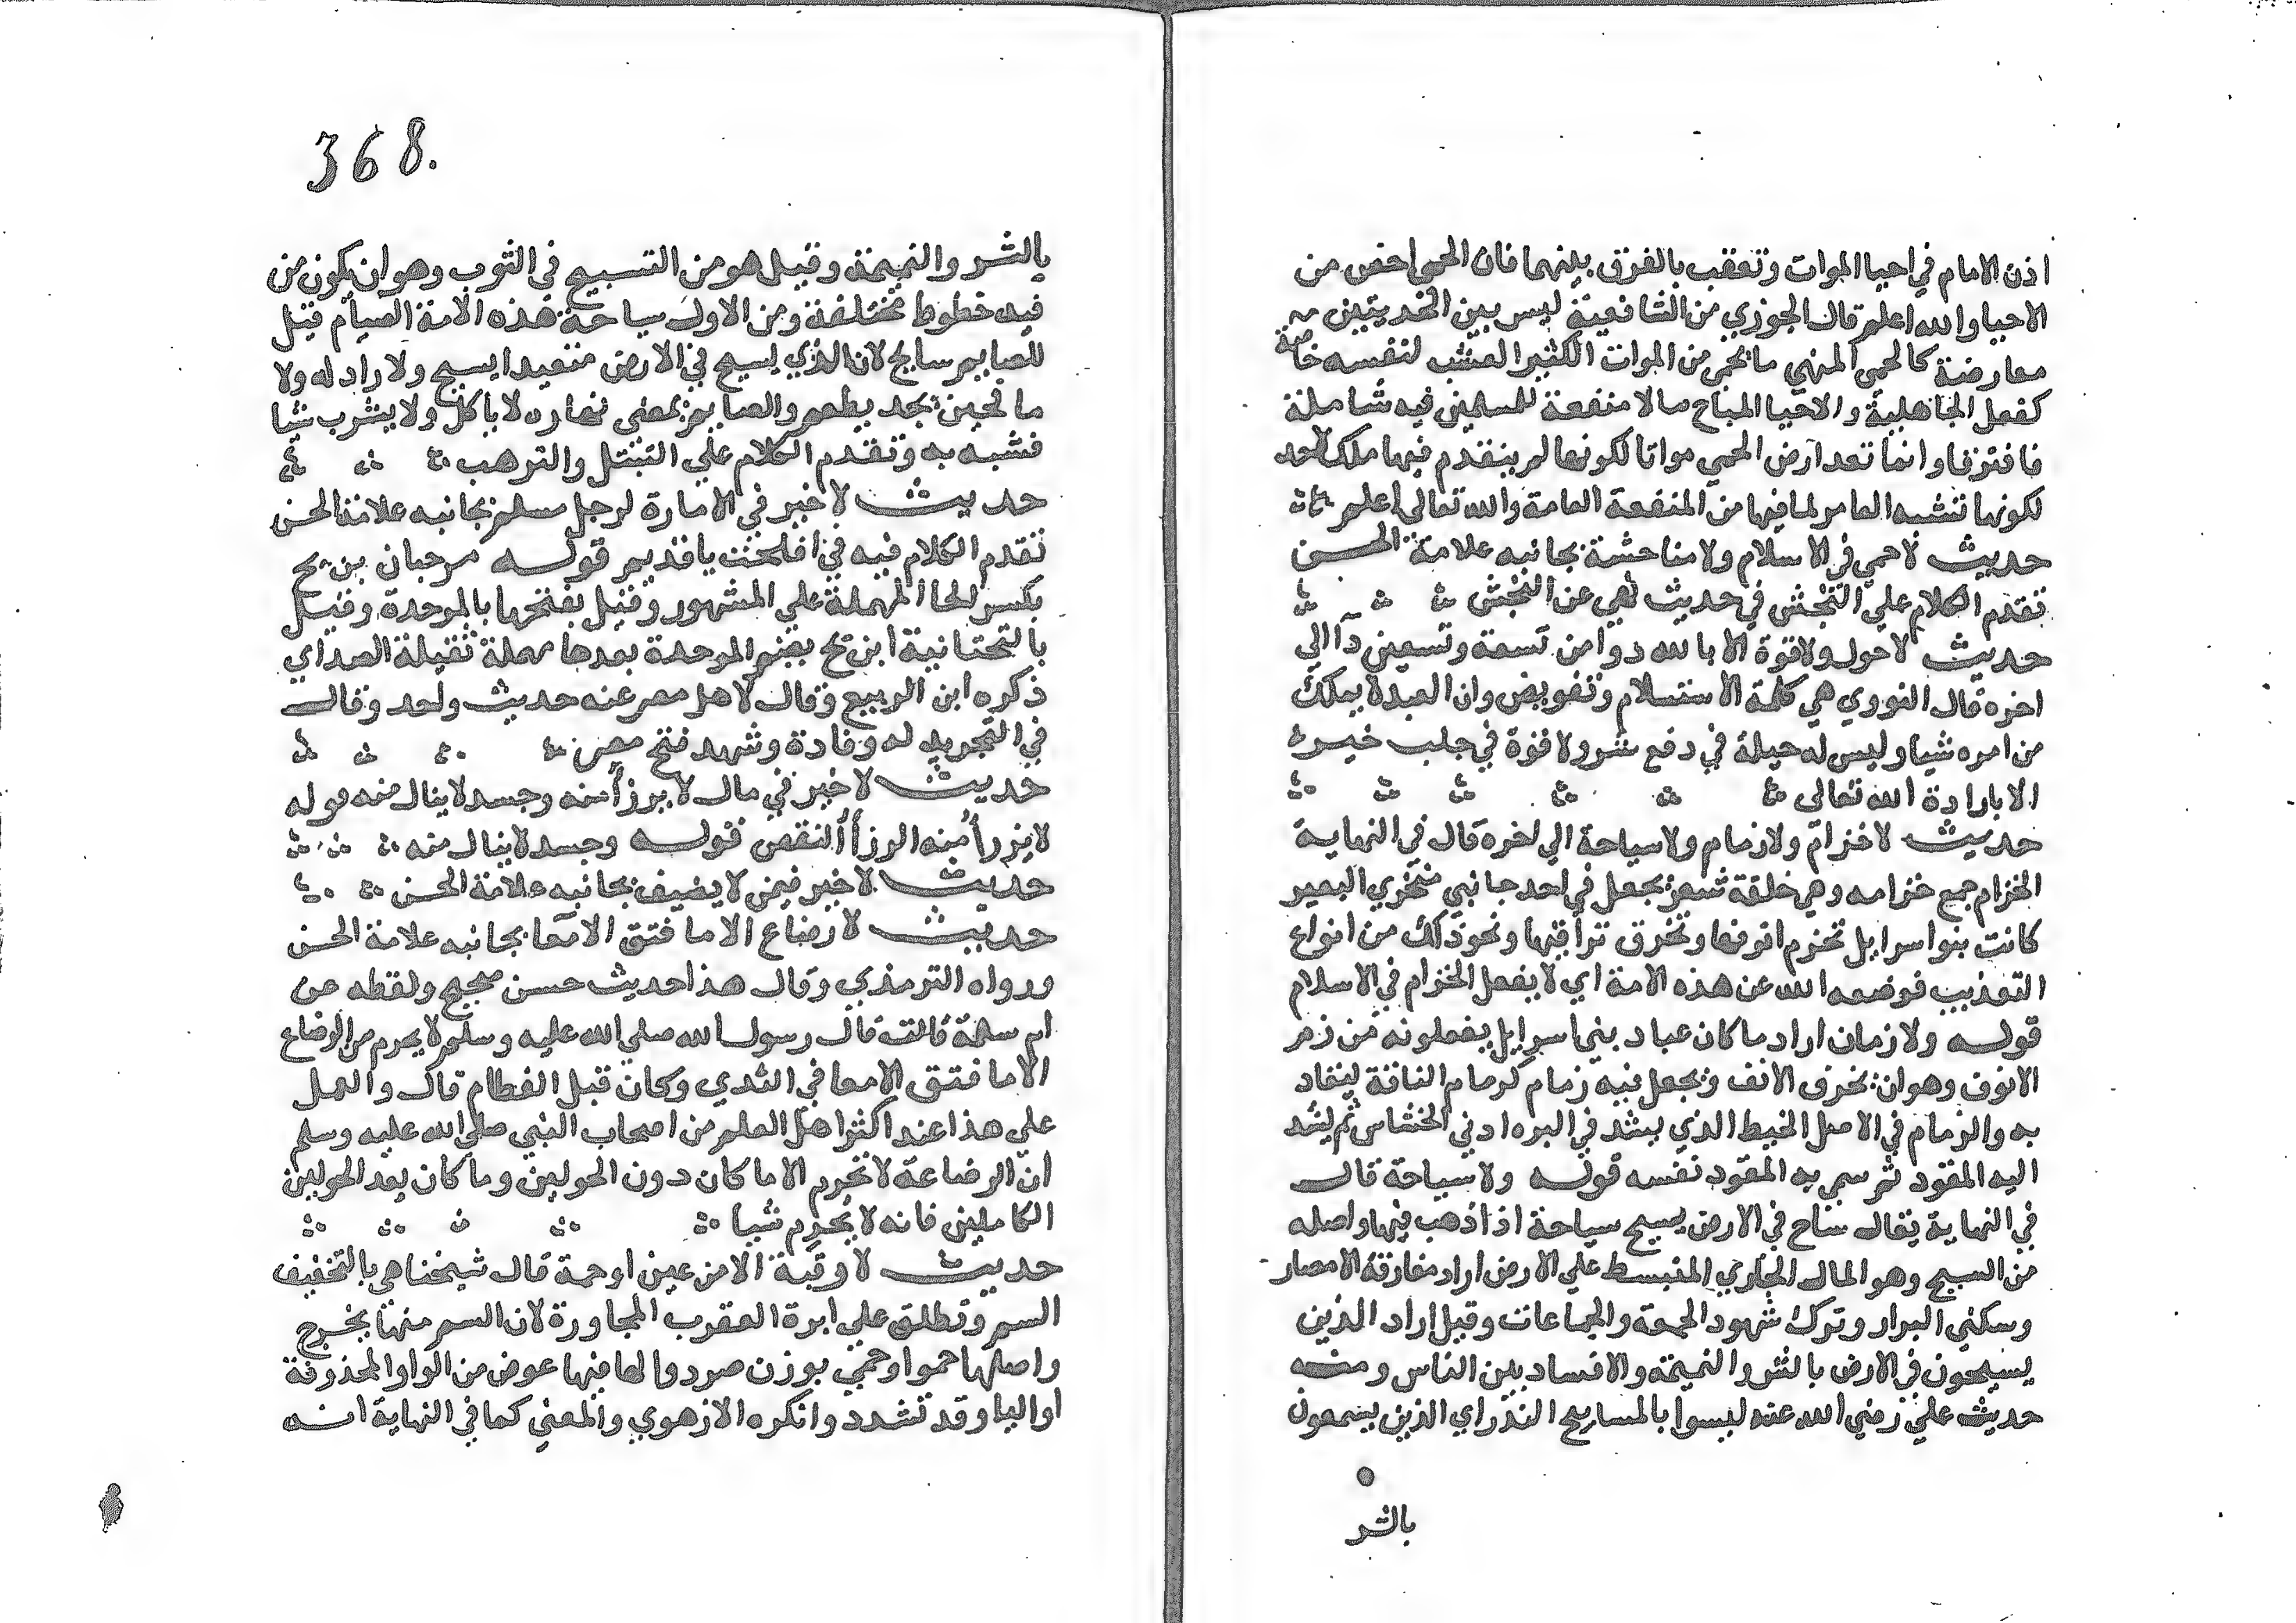 اذن الامام في احيا الموات وتعقب بالفرق بينهما فان الحمى اخص من
الاحيا والله اعلم قال الجوزي من الشافعية ليس بين الحديثين
معارضة كالحمى المنهي ما يحمى من الموات الكثير العشب لنفسه خاصة
كفعل الجاهلية والاحيا المباح ما لا منفعة للمسلمين فيه شاملة
فافترقا وانما تعد ارض الحمى مواتا لكونها لم يتقدم فيها ملك لاحد
لكونها تشبه العامر لما فيها من المنفعة العامة والله تعالى اعلم
حديث لا حمي في الاسلام ولا مناحشة بجانبه علامة الحسن
تقدم الكلام علي النجش في حديث نهي عن النجش
حديث لا حول ولا قوة الا بالله دوا من تسعة وتسعين دآ الى
اخره قال النووي هي كلمة الاستسلام وتفويض وان العبد لا يملك
من امره شيا وليس له حيلة في دفع شر ولا قوة في جلب خير
الا بارادة الله تعالى
حديث لا خزام ولا زمام ولا سياحة الي اخره قال في النهاية
الخزام جمع خزامه وهي حلقة شعر يجعل في احد جانبي منخري البعير
كانت بنوا سرايل تخزم انوفها وتخرق تراقيها ونحو ذلك من انواع
التعذيب فوضعه الله عن هذه الامة اي لا يفعل الخزام في الاسلام
قوله ولا زمان اراد ما كان عباد بني اسرايل يفعلونه من زم
الانوف وهو ان يخرق الانف ويجعل فيه زمام كزمام الناقة لينقاد
به والزمام في الاصل الخيط الذي يشد في البره او في الخشاش ثم يشد
اليه المقود ثم سمي به المقود نفسه قوله ولا سياحة قال
في النهاية يقال ساح في الارض يسيح سياحة اذا ذهب فيها واصله
من السيح وهو المال الجاري المنبسط علي الارض اراد مفارقة الامصار
وسكني البرار وترك شهود الجمعة والجماعات وقيل اراد الذين
يسيحون في الارض بالشر والنميمة والافساد بين الناس ومنه
حديث علي رضي الله عنه ليسوا بالمساييح النذر اي الذين يسعون
بالشر
368.
بالشر والنميمة وقيل هو من التسبيح في الثوب وهو ان يكون من
فيه خطوط مختلفة ومن الاول سياحة هذه الامة الصيام قيل
للصايم سايح لان الذي يسيح في الارض متعبدا يسيح ولا زاد له ولا
ما فحين يجد يطعم والصايم يمضي نهاره لا ياكل ولا يشرب شيا
فشبه به وتقدم الكلام علي التبتل والترهب
حديث لا خير في الامارة لرجل مسلم بجانبه علامة الحسن
تقدم الكلام فيه في افلحت يا قديم قوله عن حبان بن بح
بكسر الحا المهملة علي المشهور وقيل بفتحها بالموحدة وقيل
بالتحتانية ابن بح بضم الموحدة بعدها مهملة ثقيلة الصداي
ذكره ابن الربيع وقال لاهل مصر عنه حديث واحد وقال
في التجريد له وفادة وشهد فتح مصر
حديث لا خير في مال لا يرزأ منه وجسد لا ينال منه قوله
لا يزرأ منه الرزأ النقص قوله وجسد لا ينال منه
حديث لا خير فيمن لا يضيف بجانبه علامة الحسن
حديث لا رضاع الا ما فتق الامعا بجانبه علامة الحسن
ورواه الترمذي وقال هذا حديث حسن صحيح ولفظه عن
ام سلمة قالت قال رسول الله صلي الله عليه وسلم لا يحرم من الرضاع
الا ما فتق الامعا في الثدي وكان قبل الفطام قال والعمل
علي هذا عند اكثر اهل العلم من اصحاب النبي صلي الله عليه وسلم
ان الرضاعة لا تحرم الا ما كان دون الحولين وما كان بعد الحولين
الكاملين فانه لا يحرم شيا
حديث لا رقية الا من عين او حمة قال شيخنا هي بالتخفيف
السم وتطلق علي ابرة العقرب المجاورة لان السم منها يخرج
واصلها حموا وحمي بوزن صرد والها فيها عوض من الواو المحذوفة
او اليا وقد تشدد وانكره الازهري والمعني كما في النهاية انه